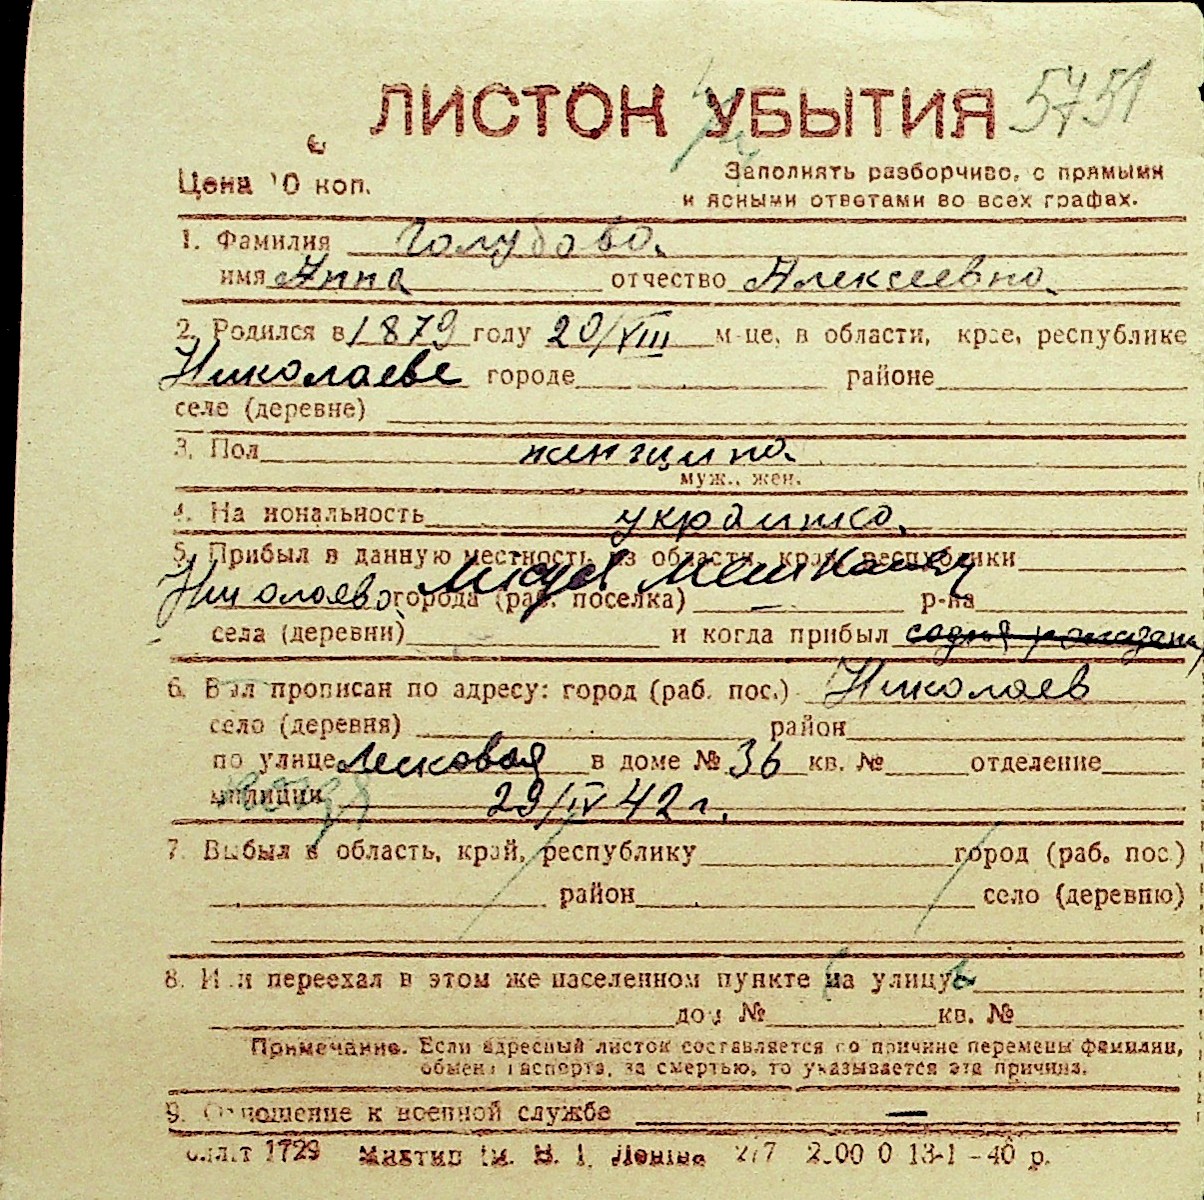 ЛИСТОК УБЫТИЯ 5751
Цена 10 коп.
Заполнять разборчиво, с прямыми
и ясными ответами во всех графах.
1. Фамилия Голубова
имя Анна отчество Алексеевна
2. Родился в 1879 году 20/VIII м-це, в области, крае, республике
Николаеве городе районе
селе (деревне)
3. Пол женщина
муж., жен.
4. Национальность украинка
5. Прибыл в данную местность из области, края, республики
Николаева города (раб. поселка) р-на
села (деревни) и когда прибыл
6. Был прописан по адресу: город (раб. пос.) Николаев
село (деревня) район
по улице Лесковая в доме № 36 кв. № отделение
милиции 29/IV 42 г.
7. Выбыл в область, край, республику город (раб. пос.)
район село (деревню)
8. Или переехал в этом же населенном пункте на улицу
дом № кв. №
Примечание. Если адресный листок составляется по причине перемены фамилии,
обмена паспорта, за смертью, то указывается эта причина.
9. Отношение к военной службе —
1729 им. В. І. Леніна 2/7 13-1-40 р.